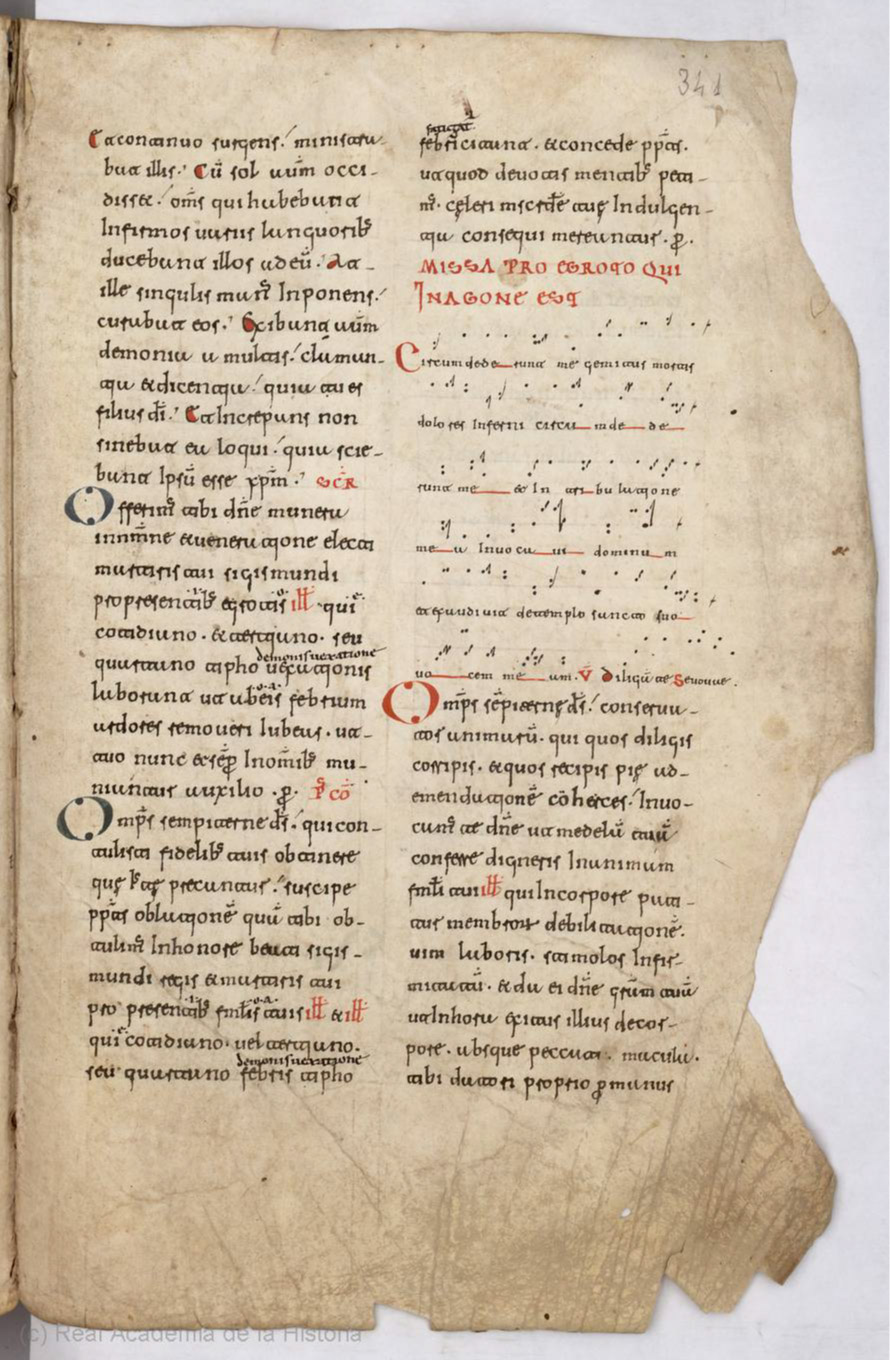 Et continuo surgens. ministra-
bat illis. Cū sol aūm occi-
disset. om̄s qui habebant
Infirmos uariis languorib;
ducebant illos ad eū. At
ille singulis man' Inponens.
curabat eos. Exibant aūm
demonia a multis. claman-
tia & dicentia. quia tu es
filius dī. Et Increpans non
sinebat ea loqui. quia scie-
bant Ipsū esse xp̄m. SCR̄
Offerim' tibi dn̄e munera
in nm̄ne & ueneratione electi
martiris tui sigismundi
pro presentib; egrotis ill qui
cotidiano. & tertiano. seu
demonis uexatione
quartano tipho uexationis
laborant ut ab eis febrium
ardores remoueri iubeas. ut
tuo nunc & sēp In omīb; mu-
niantur auxilio. p. P cō
Omp̄s sempiterne ds̄. qui con-
tulisti fidelib; tuis obtinere
quę precantur. suscipe
pp̄tas oblationē quā tibi ob-
tulim' In honore beati sigis-
mundi regis & martiris tui
pro presentib; fml̄is tuis ill & ill
qui cotidiano. uel tertiano.
demonis uexatione
seu quartano febris tipho
341
fatigat
febriciant. & concede pp̄tas.
ut quod deuotis mentib; peti-
m'. cęleri mscr̄de tuę Indulgen-
tia consequi mereantur. p.
MISSA PRO EGROTO QUI
IN AGONE EST
Circumdederunt me gemitus mortis
dolores Inferni circumdede
runt me & In tribulatione
mea Inuocaui dominum
et exaudiuit de templo sancto suo
uocem meam. V Diligā te Seuouae.
Omp̄s sēpiternę ds̄. conserua-
tor animarū. qui quos diligis
corripis. & quos recipis pię ad
emendationē cōherces. Inuo-
cam' te dn̄e ut medelā tuā
conferre digneris In animam
fml̄i tui ill qui In corpore pati-
tur membror debilitationē.
uim laboris. stimolos Infir-
mitatū. & da ei dn̄e gr̄am tuā
ut In hora exitus illius de cor-
pore. absque peccati. macula.
tibi datori proprio p munus
(c) Real Academia de la Historia